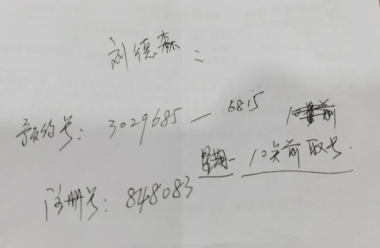 刘德森:
预约号: 3029685—6815
星期一 10点前取号.
注册号: 848083